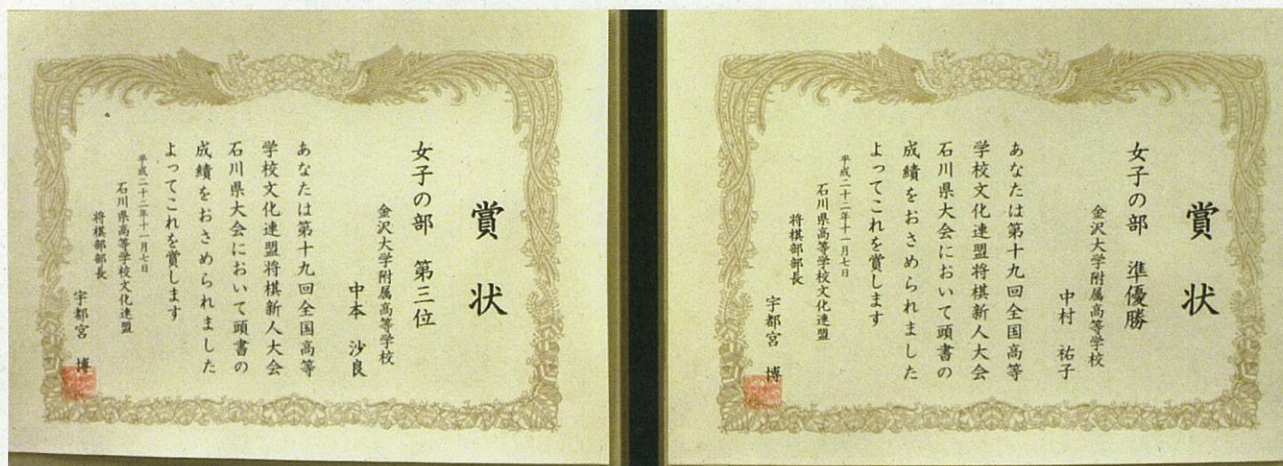 賞状
女子の部 第三位
金沢大学附属高等学校
中本 沙良
あなたは第十九回全国高等
学校文化連盟将棋新人大会
石川県大会において頭書の
成績をおさめられました
よってこれを賞します
平成二十二年十一月七日
石川県高等学校文化連盟
将棋部部長
宇都宮 博
賞状
女子の部 準優勝
金沢大学附属高等学校
中村 祐子
あなたは第十九回全国高等
学校文化連盟将棋新人大会
石川県大会において頭書の
成績をおさめられました
よってこれを賞します
平成二十二年十一月七日
石川県高等学校文化連盟
将棋部部長
宇都宮 博